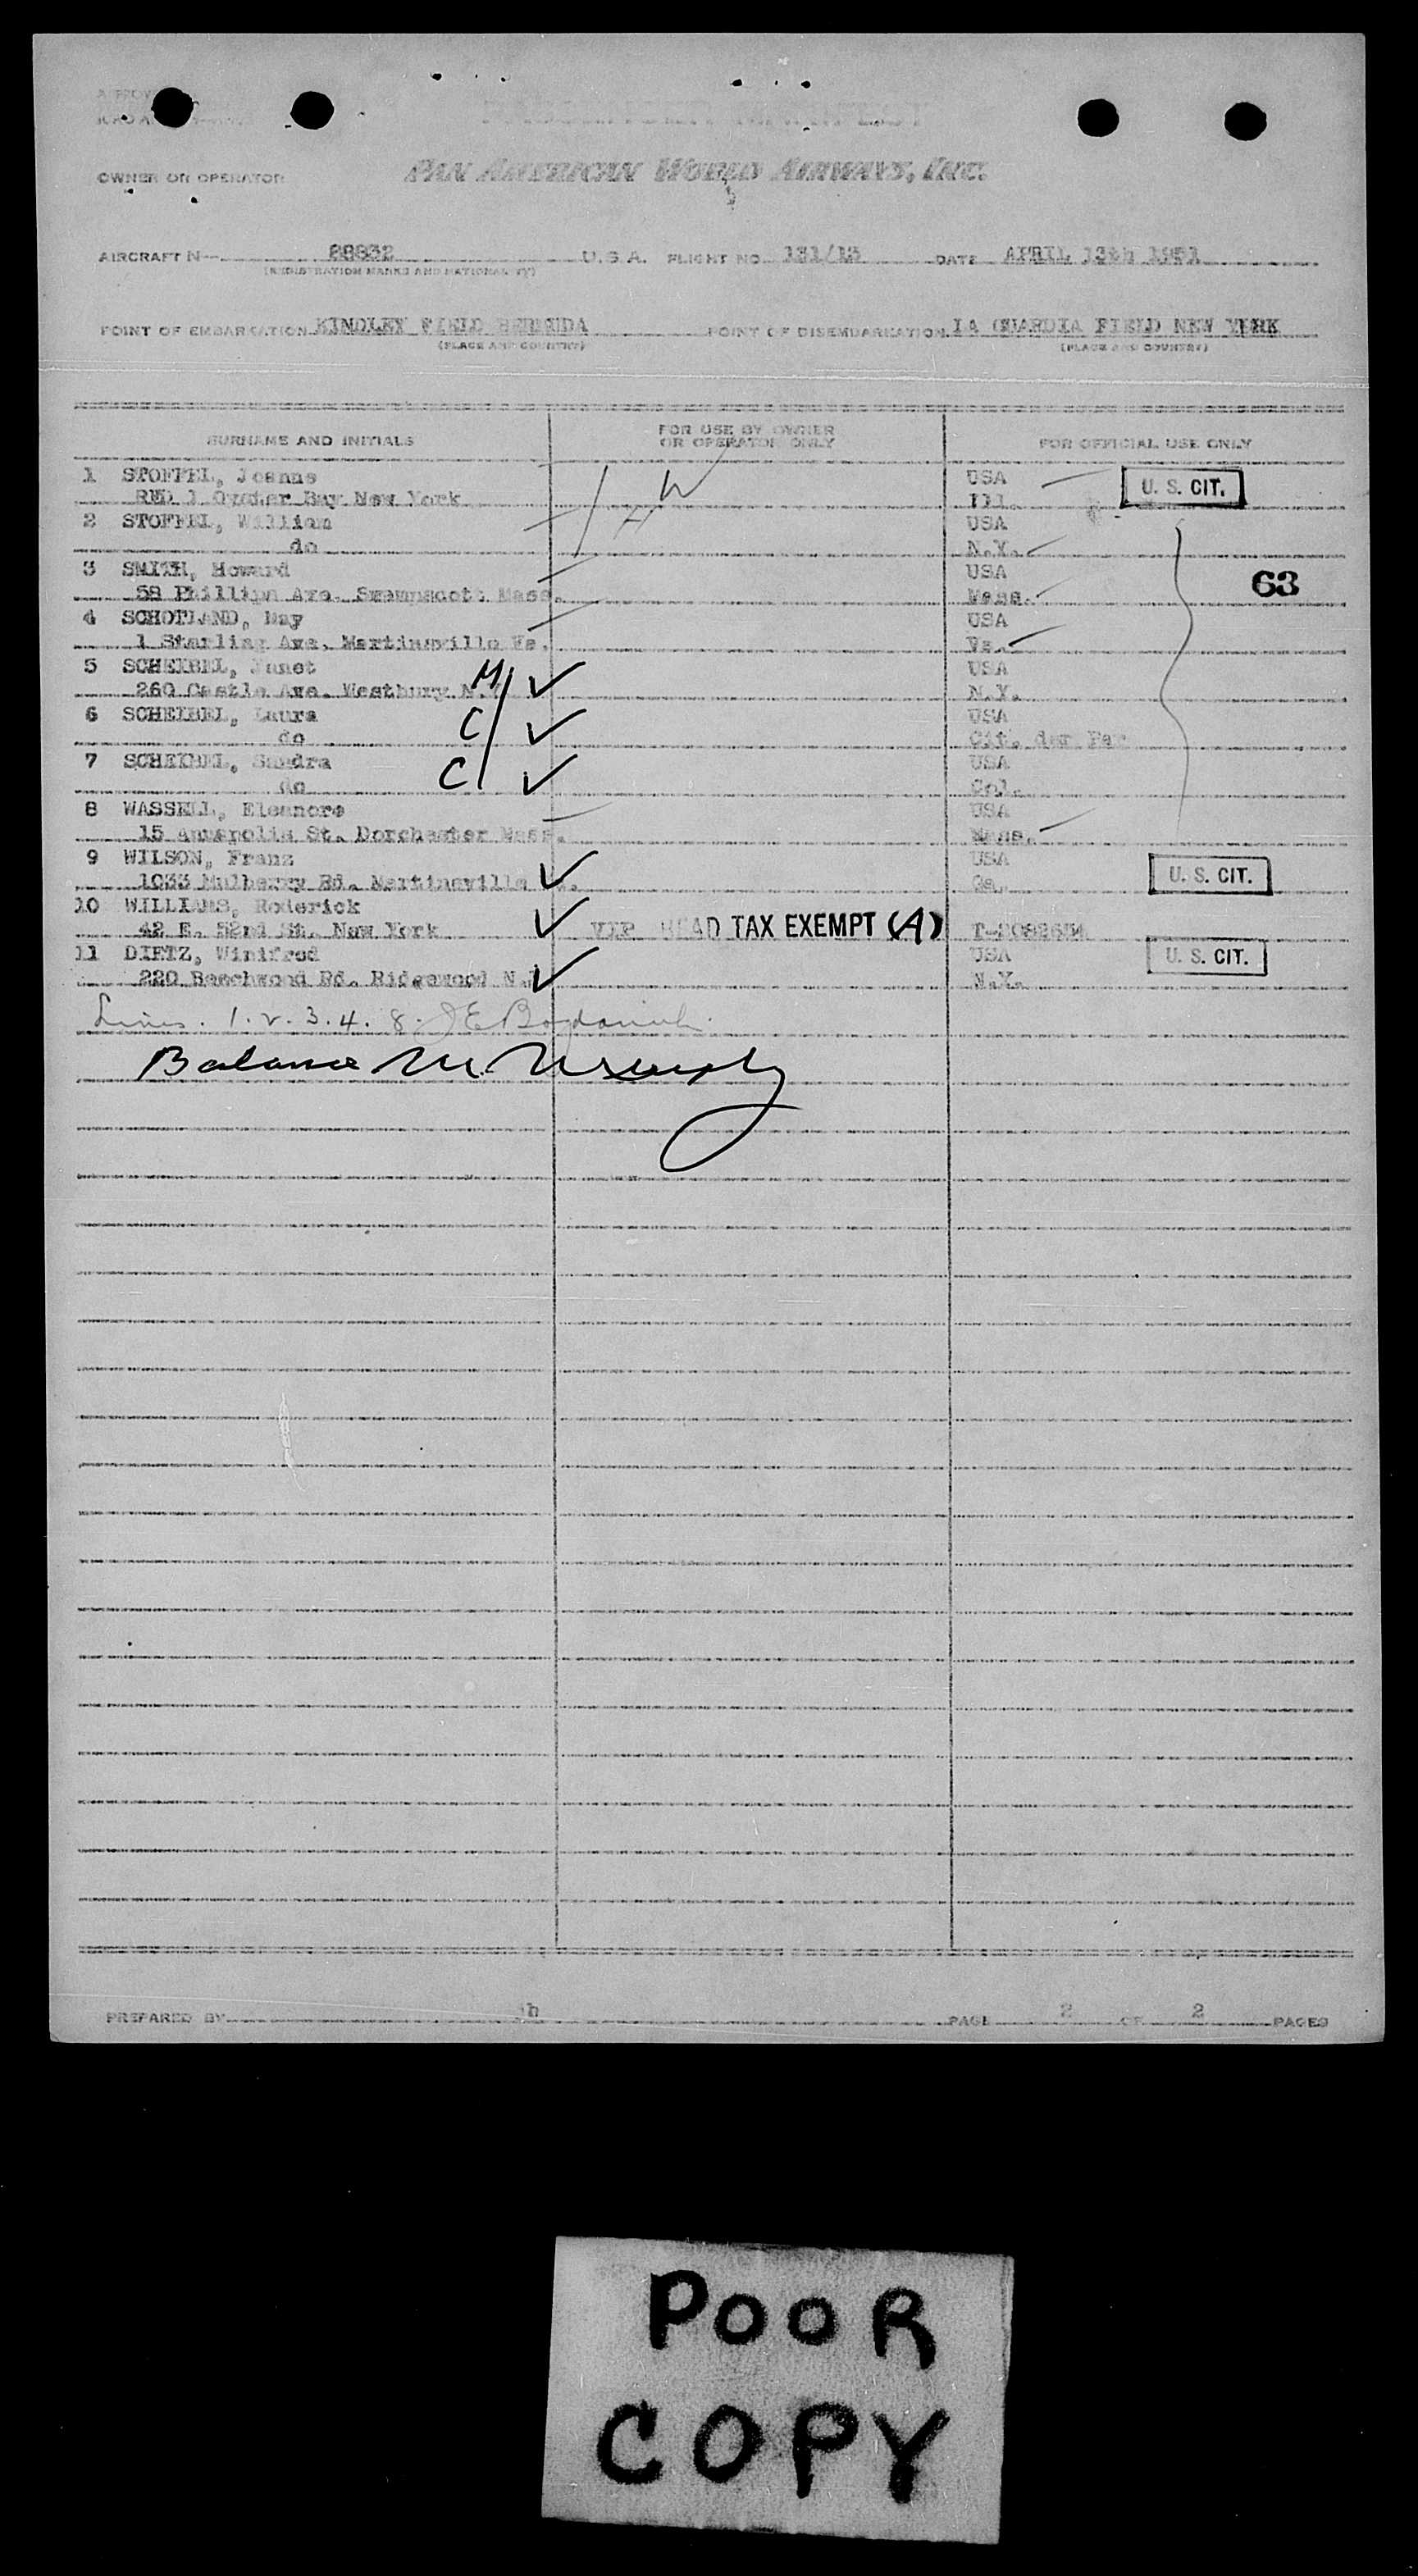 OWNER OR OPERATOR PAN AMERICAN WORLD AIRWAYS, INC.
AIRCRAFT N— 88832 U.S.A. FLIGHT NO. 131/13 DATE APRIL 13th 1951
(REGISTRATION MARKS AND NATIONALITY)
POINT OF EMBARKATION KINDLEY FIELD BERMUDA POINT OF DISEMBARKATION LA GUARDIA FIELD NEW YORK
(PLACE AND COUNTRY) (PLACE AND COUNTRY)
SURNAME AND INITIALS FOR USE BY OWNER OR OPERATOR ONLY FOR OFFICIAL USE ONLY
1 STOFFEL, Joanne W USA U. S. CIT.
RFD 1 Oyster Bay New York Ill.
2 STOFFEL, William H USA
do N.Y.
3 SMITH, Howard USA 63
58 Phillips Ave. Swampscott Mass. Mass.
4 SCHOTLAND, May USA
1 Starling Ave. Martinsville Va. Va.
5 SCHEIBEL, Janet M USA
260 Castle Ave. Westbury N.Y. N.Y.
6 SCHEIBEL, Laura C USA
do Cit. der Par
7 SCHEIBEL, Sandra C USA
do Col.
8 WASSELL, Eleanore USA
15 Annapolis St. Dorchester Mass. Mass.
9 WILSON, Franz USA U. S. CIT.
1033 Mulberry Rd. Martinsville Ga.
10 WILLIAMS, Roderick
42 E. 52nd St. New York VIP HEAD TAX EXEMPT (A)
11 DIETZ, Winifred USA U. S. CIT.
220 Beechwood Rd. Ridgewood N.J. N.Y.
Lines. 1. 2. 3. 4. 8.
Balance
PREPARED BY PAGE 2 OF 2 PAGES
POOR
COPY